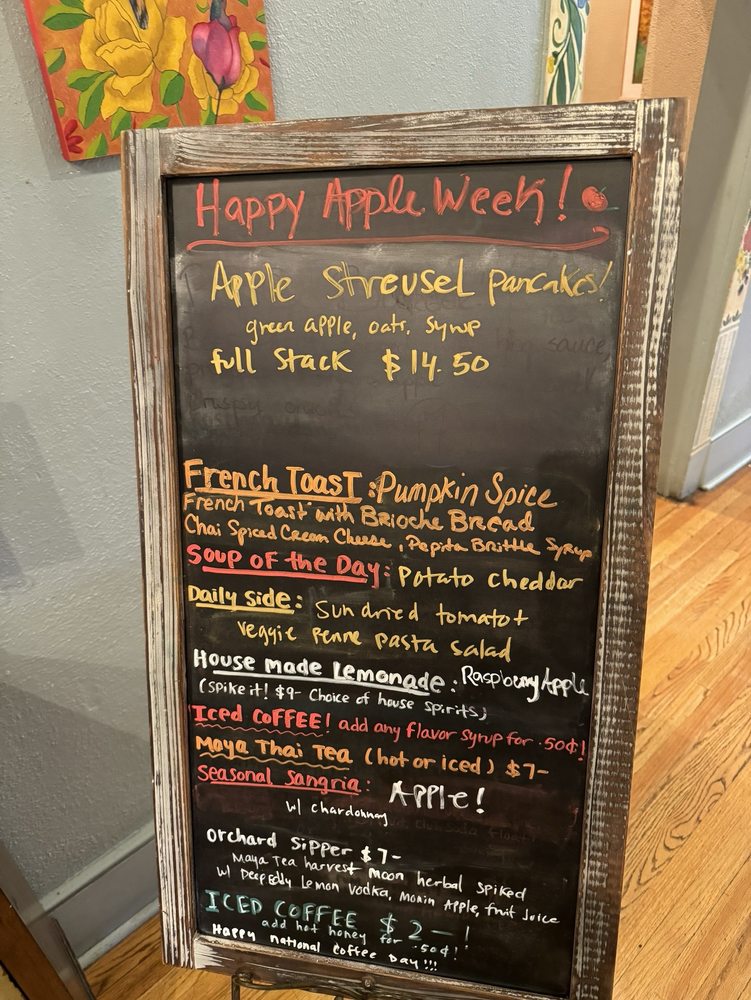 Happy Apple Week!
Apple Streusel pancakes!
green apple, oats, syrup
full stack $14.50
French Toast: Pumpkin Spice
French Toast with Brioche Bread
Chai Spiced Cream Cheese, Pepita Brittle Syrup
Soup of the Day: Potato cheddar
Daily side: Sun dried tomato +
veggie penne pasta salad
House made Lemonade: Raspberry Apple
(Spike it! $9- Choice of house spirits)
Iced coffee! add any flavor syrup for .50¢!
Maya Thai Tea (hot or iced) $7-
Seasonal Sangria: Apple!
w/ chardonnay
Orchard Sipper $7-
Maya Tea harvest moon herbal spiked
w/ Deep Eddy Lemon Vodka, Monin Apple, fruit juice
ICED COFFEE $2-!
add hot honey for .50¢!
Happy national coffee Day!!!